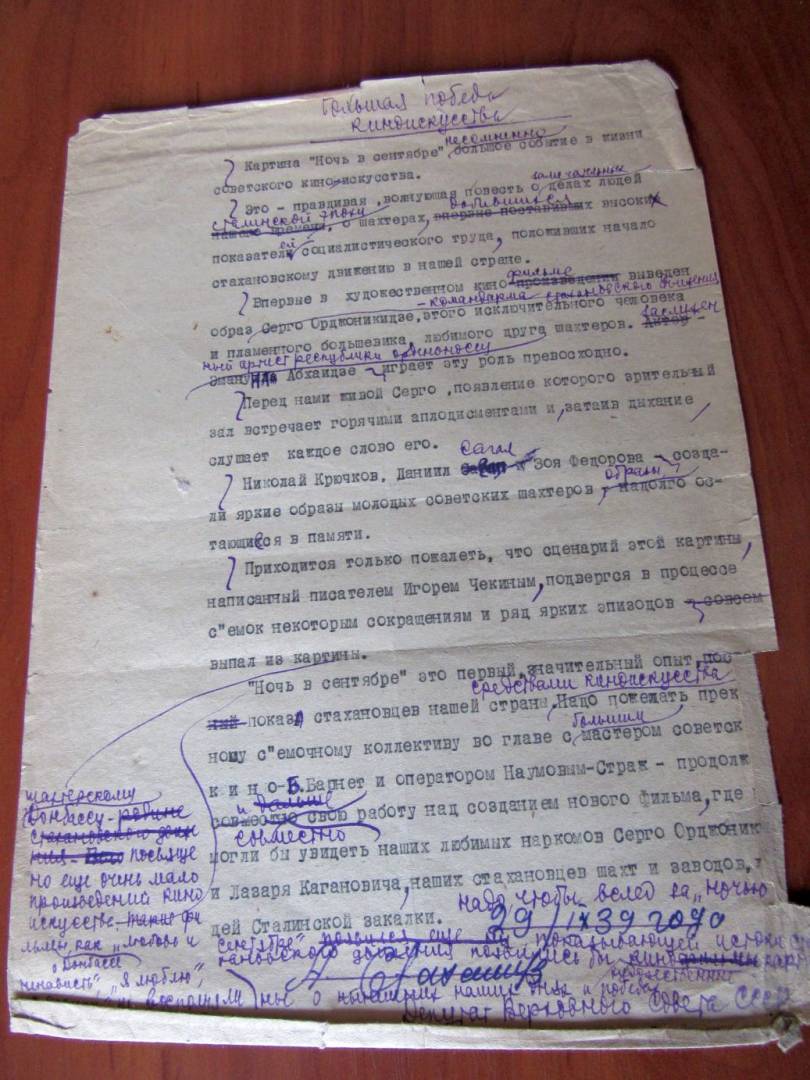 Большая победа
киноискусства
несомненно
Картина "Ночь в сентябре" большое событие в жизни
советского кино-искусства.
замечательных
Это - правдивая, волнующая повесть о делах людей
сталинской эпохи добившихся
нашего времени, о шахтерах, впервые поставивших высоких
показателей социалистического труда, положивших начало
стахановскому движению в нашей стране.
фильме
Впервые в художественном кино-произведении выведен
- командарма стахановского движения
образ Серго Орджоникидзе, этого исключительного человека
и пламенного большевика, любимого друга шахтеров. Заслужен
ный артист республики орденоносец
Абхаидзе играет эту роль превосходно.
Перед нами живой Серго, появление которого зрительный
зал встречает горячими аплодисментами и, затаив дыхание,
слушает каждое слово его.
Сагал
Николай Крючков, Даниил и Зоя Федорова - созда-
образы
ли яркие образы молодых советских шахтеров, надолго ос-
тающиеся в памяти.
Приходится только пожалеть, что сценарий этой картины,
написанный писателем Игорем Чекиным, подвергся в процессе
с"емок некоторым сокращениям и ряд ярких эпизодов совсем
выпал из картины.
"Ночь в сентябре" это первый, значительный опыт, пос-
средствами киноискусства
показа стахановцев нашей страны. Надо пожелать прек
большим
ному с"емочному коллективу во главе с мастером советск
к и н о - Б.Барнет и оператором Наумовым-Страж - продолж
и дальше
совместно свою работу над созданием нового фильма, где
совместно
могли бы увидеть наших любимых наркомов Серго Орджоник
и Лазаря Кагановича, наших стахановцев шахт и заводов,
дей Сталинской закалки.
шахтерскому
Донбассу - родине
стахановского движе
ния. посвяще
но еще очень мало
произведений кино
искусства. такие фи
льмы как "любовь и
ненависть", "Я люблю",
о Донбассе
надо, чтобы вслед за "Ночью
29/IX 39 года
сентябре" появился еще показывающей истоки ста
хановского движения появились бы
художественные
ны о нынешних наших днях и победах
Стаханов
Депутат Верховного Совета СССР